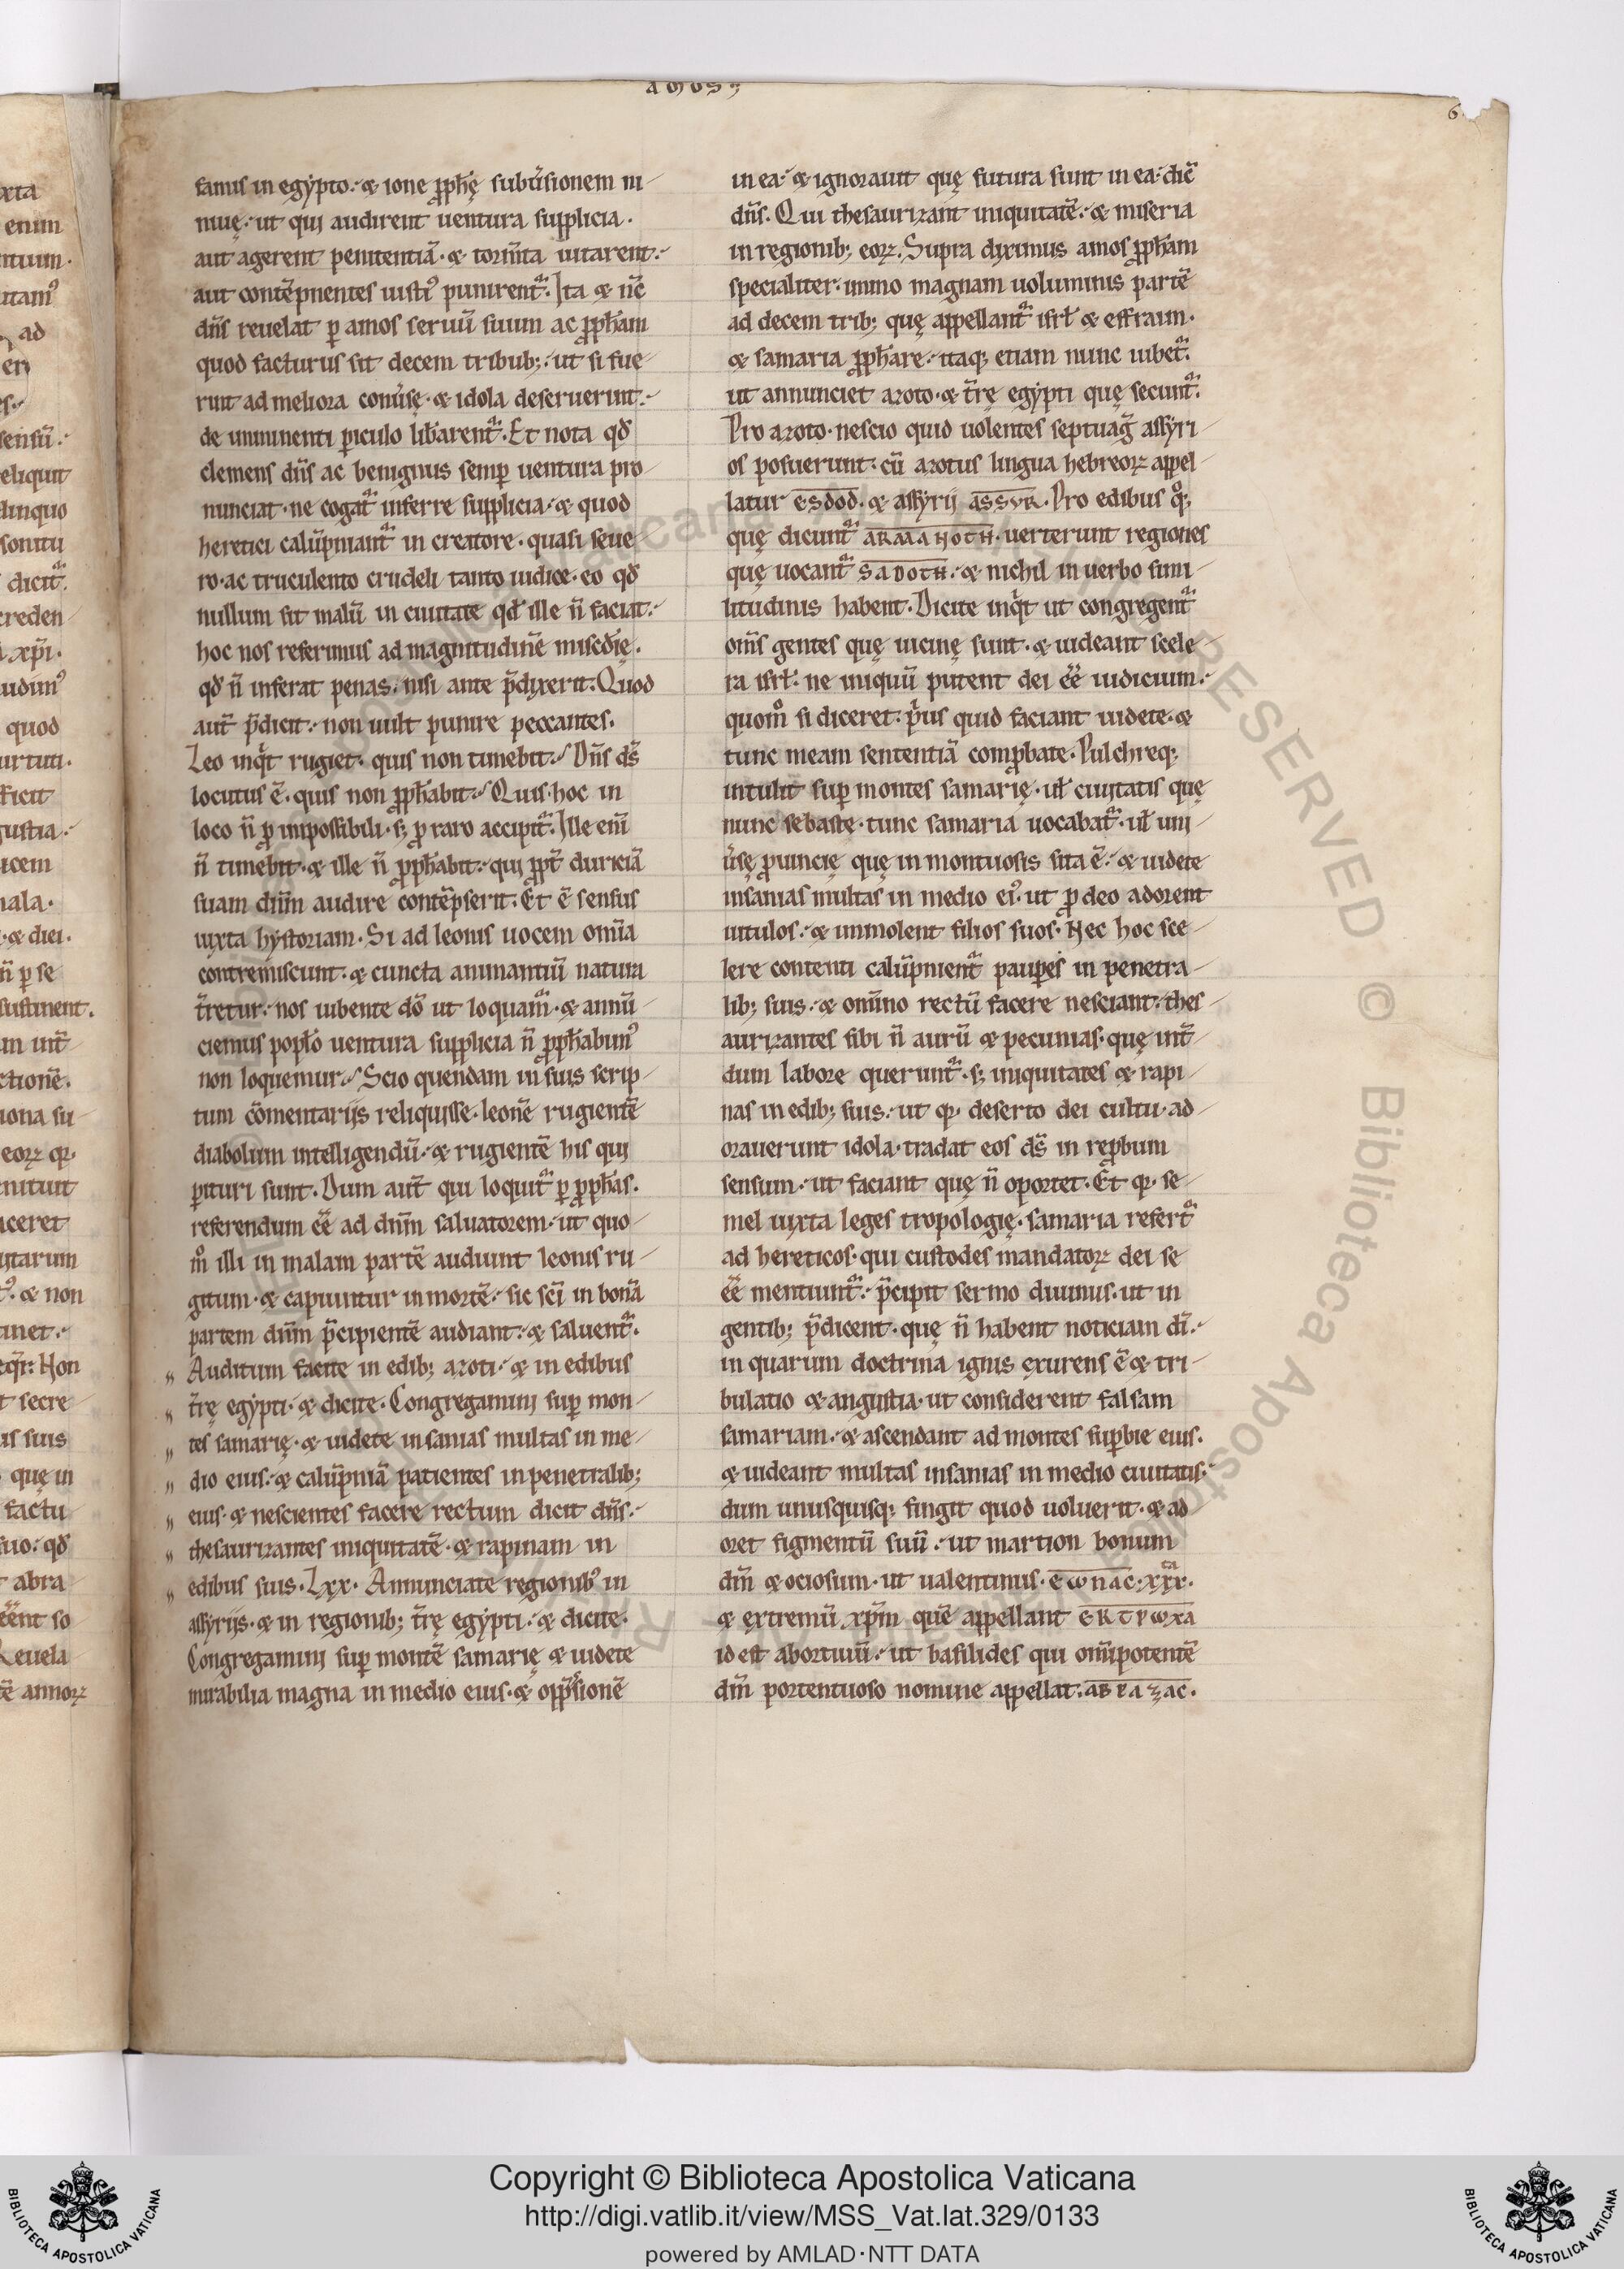 amos;
6
famis in egypto· & ione ꝓph̄ę subu̓sionem ni
niuę· ut qui audirent uentura supplicia·
aut agerent penitentiā· & torm̄ta uitarent·
aut contēpnentes iustiꝰ punirent᷑· Ita & nc̄
dn̄s reuelat ꝑ amos seruū suum ac ꝓph̄am
quod facturus sit decem tribub;· ut si fue
rint ad meliora conu̓sę· & idola deseruerint·
de imminenti ꝑiculo lib̄arent᷑· Et nota qd̄
clemens dn̄s ac benignus semꝑ uentura pro
nunciat· ne cogat᷑ inferre supplicia· & quod
heretici calūpniant᷑ in creatore· quasi seue
ro· ac truculento crudeli tanto iudice· eo qd̄
nullum sit malū in ciuitate qd̄ ille n̄ faciat·
hoc nos referimus ad magnitudinē misc̄dię·
qd̄ n̄ inferat penas· nisi ante p̄dyxerit· Quod
aut̄ p̄dicit· non uult punire peccantes·
Leo inqͥt rugiet· quis non timebit· Dn̄s ds̄
locutus ē· quis non ꝓph̄abit· Quis· hoc in
loco n̄ ꝓ impossibili· s; ꝓ raro accipit᷑· Ille eni̅
n̄ timebit· & ille n̄ ꝓph̄abit· qui ꝓpt̄ duriciā
suam dn̄m audire contēpserit· Et ē sensus
iuxta hystoriam· Si ad leonis uocem omīa
contremiscunt· & cuncta animantiū natura
t̄retur· nos iubente dō ut loquam᷑· & annū
ciemus poplo uentura supplicia n̄ ꝓph̄abimꝰ
non loquemur· Scio quendam in suis scrip
tum cōmentarijs reliquisse· leonē rugientē
diabolum intelligendū· & rugientē his qui
ꝑituri sunt· Dum aut̄ qui loquit᷑ ꝑ ꝓph̄as·
referendum ēē ad dn̄m saluatorem· ut quo
mͦ illi in malam partē audiunt leonis ru
gitum· & capiuntur in mortē· sic sc̄i in bonā
partem dn̄m p̄cipientē audiant· & saluent᷑·
„ Auditum facite in edib; azoti· & in edibus
„ t̄rę egypti· & dicite· Congregamini suꝑ mon
„ tes samarię· & uidete insanias multas in me
„ dio eius· & calūpniā patientes in penetralib;
„ eius· & nescientes facere rectum dicit dn̄s·
„ thesaurizantes iniquitatē· & rapinam in
„ edibus suis· Lxx· Annunciate regionibꝰ in
assyrijs· & in regionib; t̄rę egypti· & dicite·
Congregamini suꝑ montē samarię & uidete
mirabilia magna in medio eius· & opp̄ssionē
in ea· & ignorauit quę futura sunt in ea· dic̄
dn̄s· Qui thesaurizant iniquitatē· & miseria
in regionib; eoꝝ· Supra dyximus amos ꝓph̄am
specialiter· immo magnam uoluminis partē
ad decem trib; quę appellant᷑ isrl̄ & effraim·
& samaria ꝓph̄are· itaq; etiam nunc iubet᷑·
ut annunciet azoto· & t̄rę egypti quę secunt᷑·
Pro azoto· nescio quid uolentes septuag̅ assyri
os posuerunt· cū azotus lingua hebreoꝝ appel
latur esdod· & assyrij assvr· Pro edibus qͦ;
quę dicunt᷑ armanoth· uerterunt regiones
quę uocant᷑ sadoth· & nichil in uerbo simi
litudinis habent· Dicite inqͥt ut congregent᷑
om̄s gentes quę uicinę sunt· & uideant scele
ra isrl̄· ne iniquū putent dei ēē iudicium·
quomͦ si diceret· pͥus quid faciant uidete· &
tunc meam sententiā comꝓbate· Pulchreq;
intulit suꝑ montes samarię· ul̄ ciuitatis quę
nunc sebaste· tunc samaria uocabat᷑· ul̄ uni
u̓sę ꝓuincię quę in montuosis sita ē· & uidete
insanias multas in medio eiꝰ· ut ꝓ deo adorent
uitulos· & immolent filios suos· Nec hoc sce
lere contenti calūpnient᷑ pauꝑes in penetra
lib; suis· & omīno rectū facere nesciant· thes
aurizantes sibi n̄ aurū & pecunias· quę int̄
dum labore querunt᷑· s; iniquitates & rapi
nas in edib; suis· ut qꝛ deserto dei cultu· ad
orauerunt idola· tradat eos ds̄ in reꝓbum
sensum· ut faciant quę n̄ oportet· Et qꝛ se
mel iuxta leges tropologię· samaria refert᷑
ad hereticos· qui custodes mandatoꝝ dei se
ēē mentiunt᷑· p̄cipit sermo diuinus· ut in
gentib; p̄dicent· quę n̄ habent noticiam di̅·
in quarum doctrina ignis exurens ē & tri
bulatio & angustia· ut considerent falsam
samariam· & ascendant ad montes suꝑbie eius·
& uideant multas insanias in medio ciuitatis·
dum unusquisq; fingit quod uoluerit· & ad
oret figmentū suū· ut martion bonum
dm̄ & ociosum· ut ualentinus· eωnac· xxx·
& extremū xp̄m quē appellant ekτρωxa
id est abortiuū· ut basilides qui omīpotentē
dm̄ portentuoso nomine appellat· abraȝac·
Copyright © Biblioteca Apostolica Vaticana
http://digi.vatlib.it/view/MSS_Vat.lat.329/0133
powered by AMLAD·NTT DATA
BIBLIOTECA APOSTOLICA VATICANA
BIBLIOTECA APOSTOLICA VATICANA